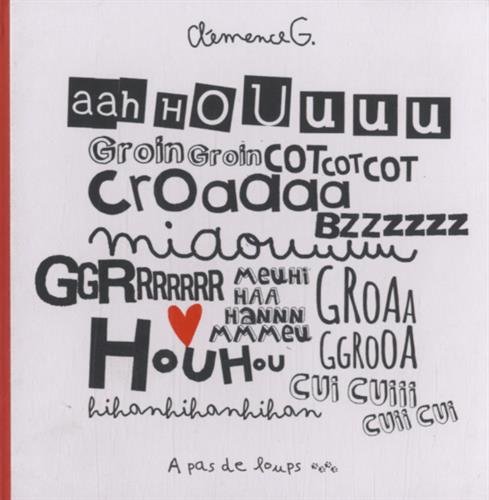 clémence G.
aah HOUuuuu
Groin Groin COT COT COT
croaaaa
BZZZZZZ
miaouuuuu
GGRRRRRRRR
MEUHI
HAA
HANNN
MMMEU
GROAA
GGROOA
HOUHOU
CUi CUiii
CUii CUi
hihanhihanhihan
A pas de loups